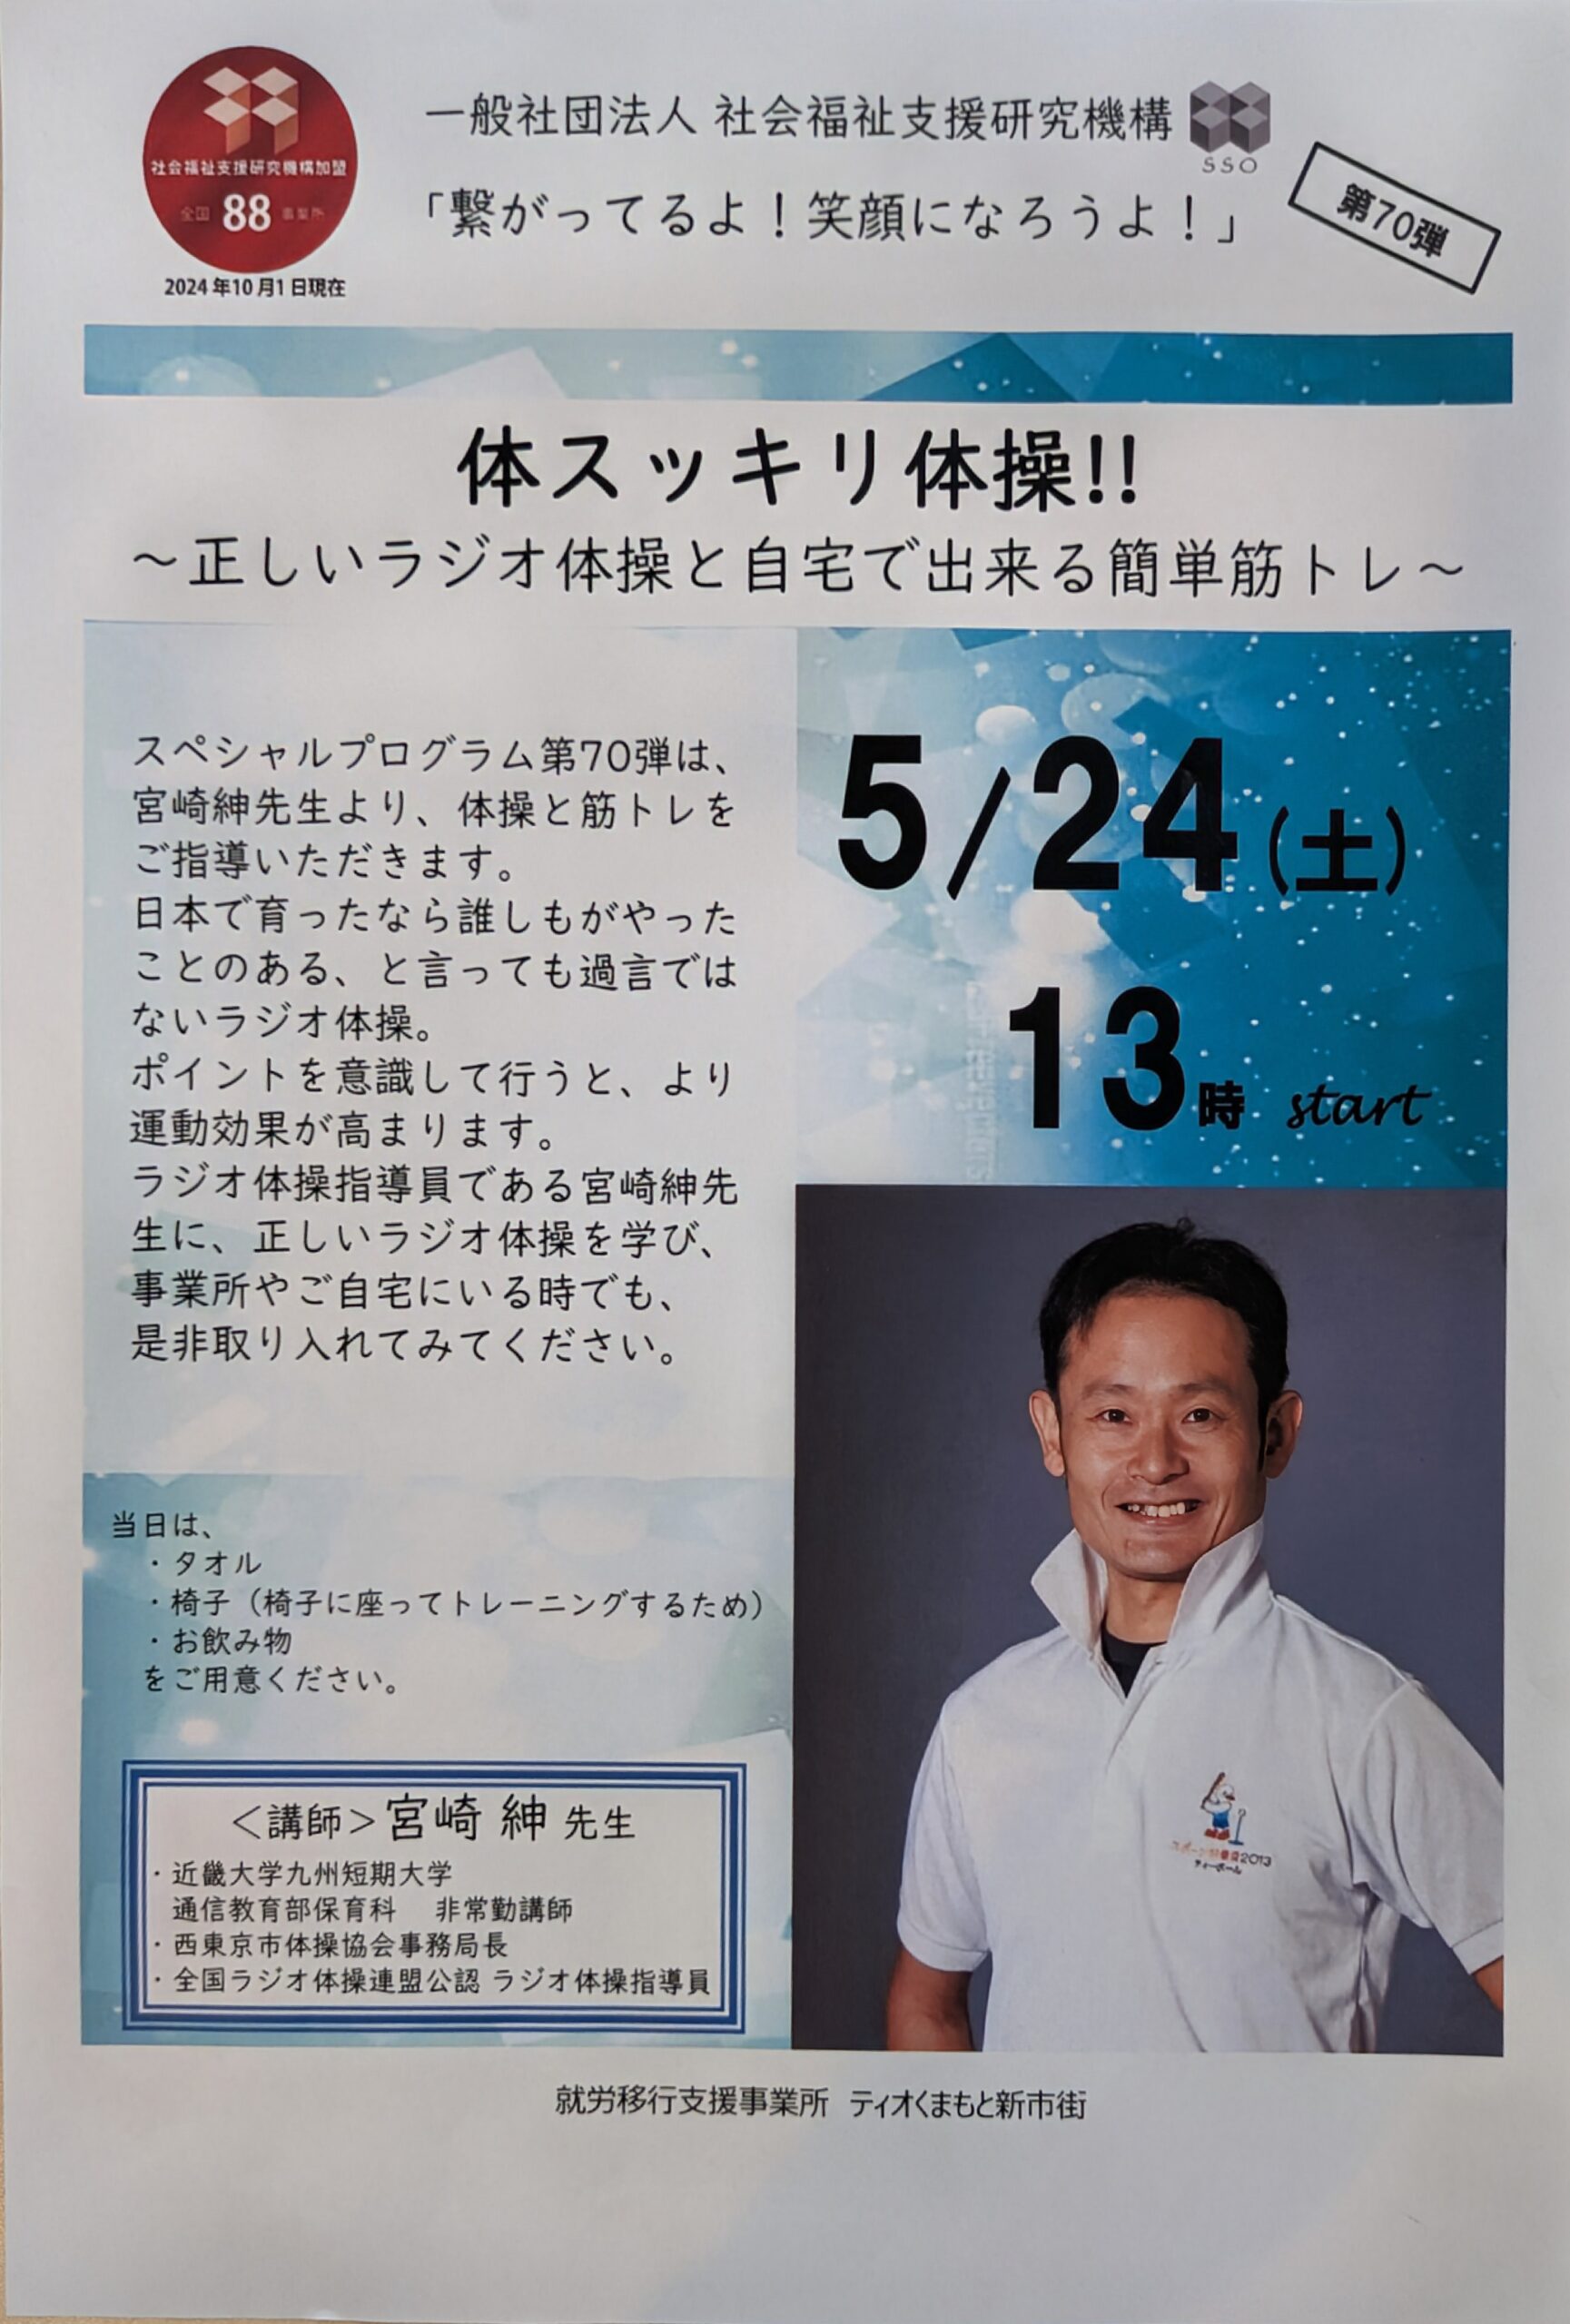 一般社団法人 社会福祉支援研究機構
SSO
社会福祉支援研究機構加盟
全国 88 事業所
2024年10月1日現在
「繋がってるよ！笑顔になろうよ！」
第70弾
体スッキリ体操!!
～正しいラジオ体操と自宅で出来る簡単筋トレ～
スペシャルプログラム第70弾は、
宮崎紳先生より、体操と筋トレを
ご指導いただきます。
日本で育ったなら誰しもがやった
ことのある、と言っても過言では
ないラジオ体操。
ポイントを意識して行うと、より
運動効果が高まります。
ラジオ体操指導員である宮崎紳先
生に、正しいラジオ体操を学び、
事業所やご自宅にいる時でも、
是非取り入れてみてください。
5/24(土)
13時 start
当日は、
・タオル
・椅子（椅子に座ってトレーニングするため）
・お飲み物
をご用意ください。
＜講師＞宮崎 紳 先生
・近畿大学九州短期大学
通信教育部保育科 非常勤講師
・西東京市体操協会事務局長
・全国ラジオ体操連盟公認 ラジオ体操指導員
2013
ティーボール
就労移行支援事業所 ティオくまもと新市街